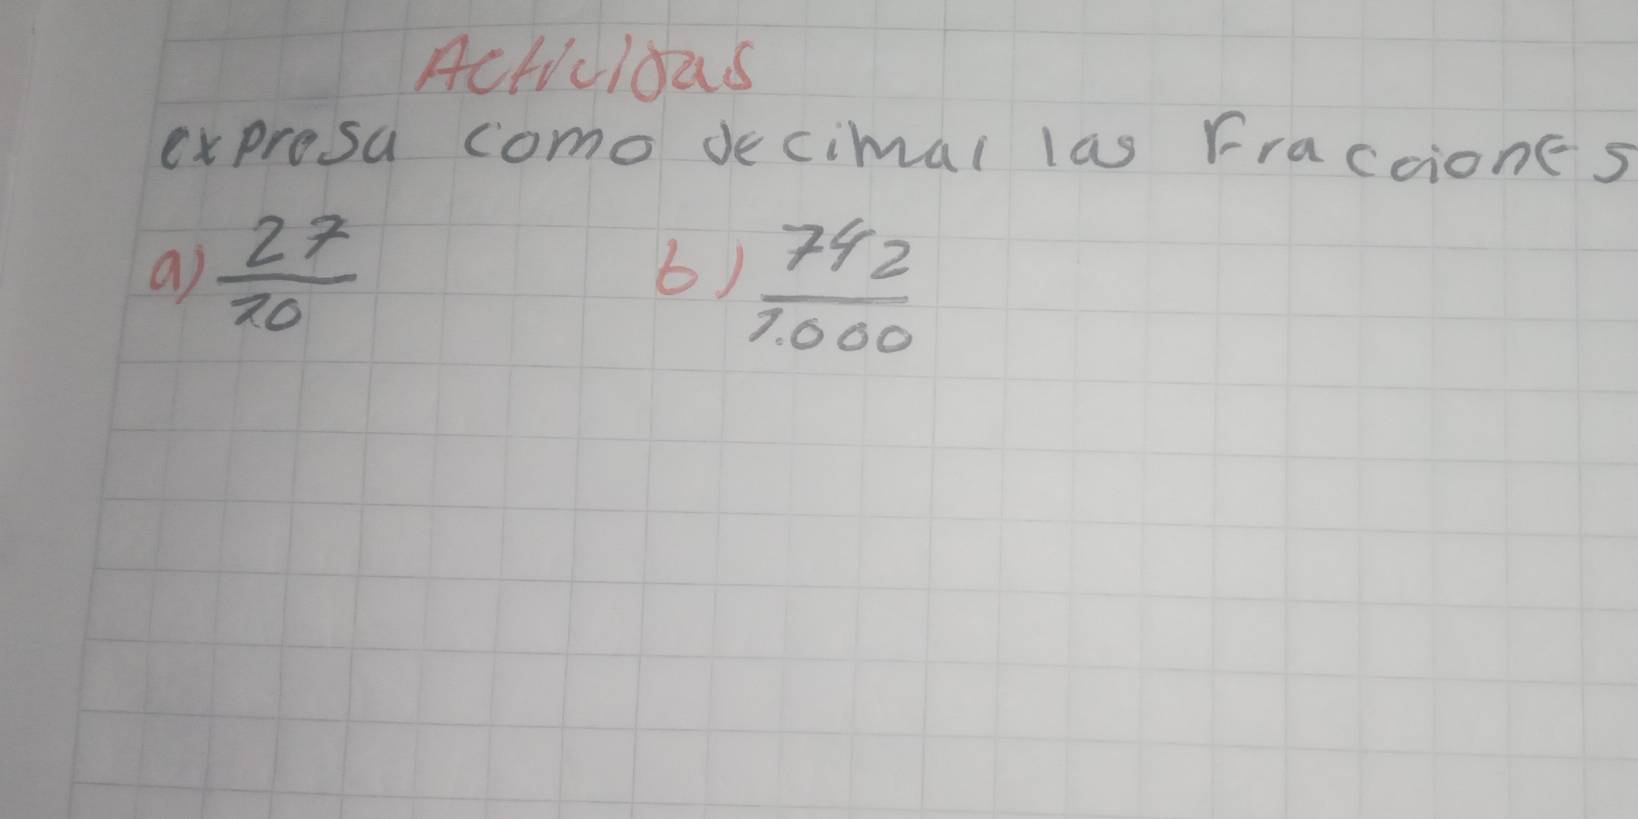 Actividas
expresa como decimal las Fracciones
a) 27/10 b) 742/1.000